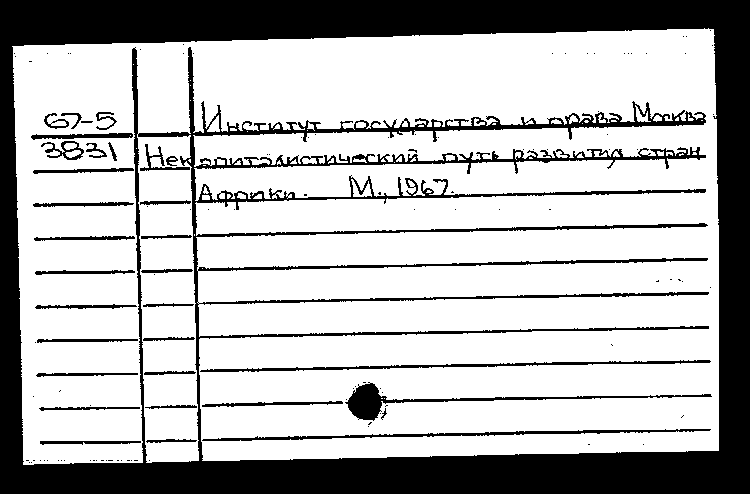 67-5 Институт государства и права Москва.
3831 Некапиталистический путь развития стран
Африки. М., 1967.